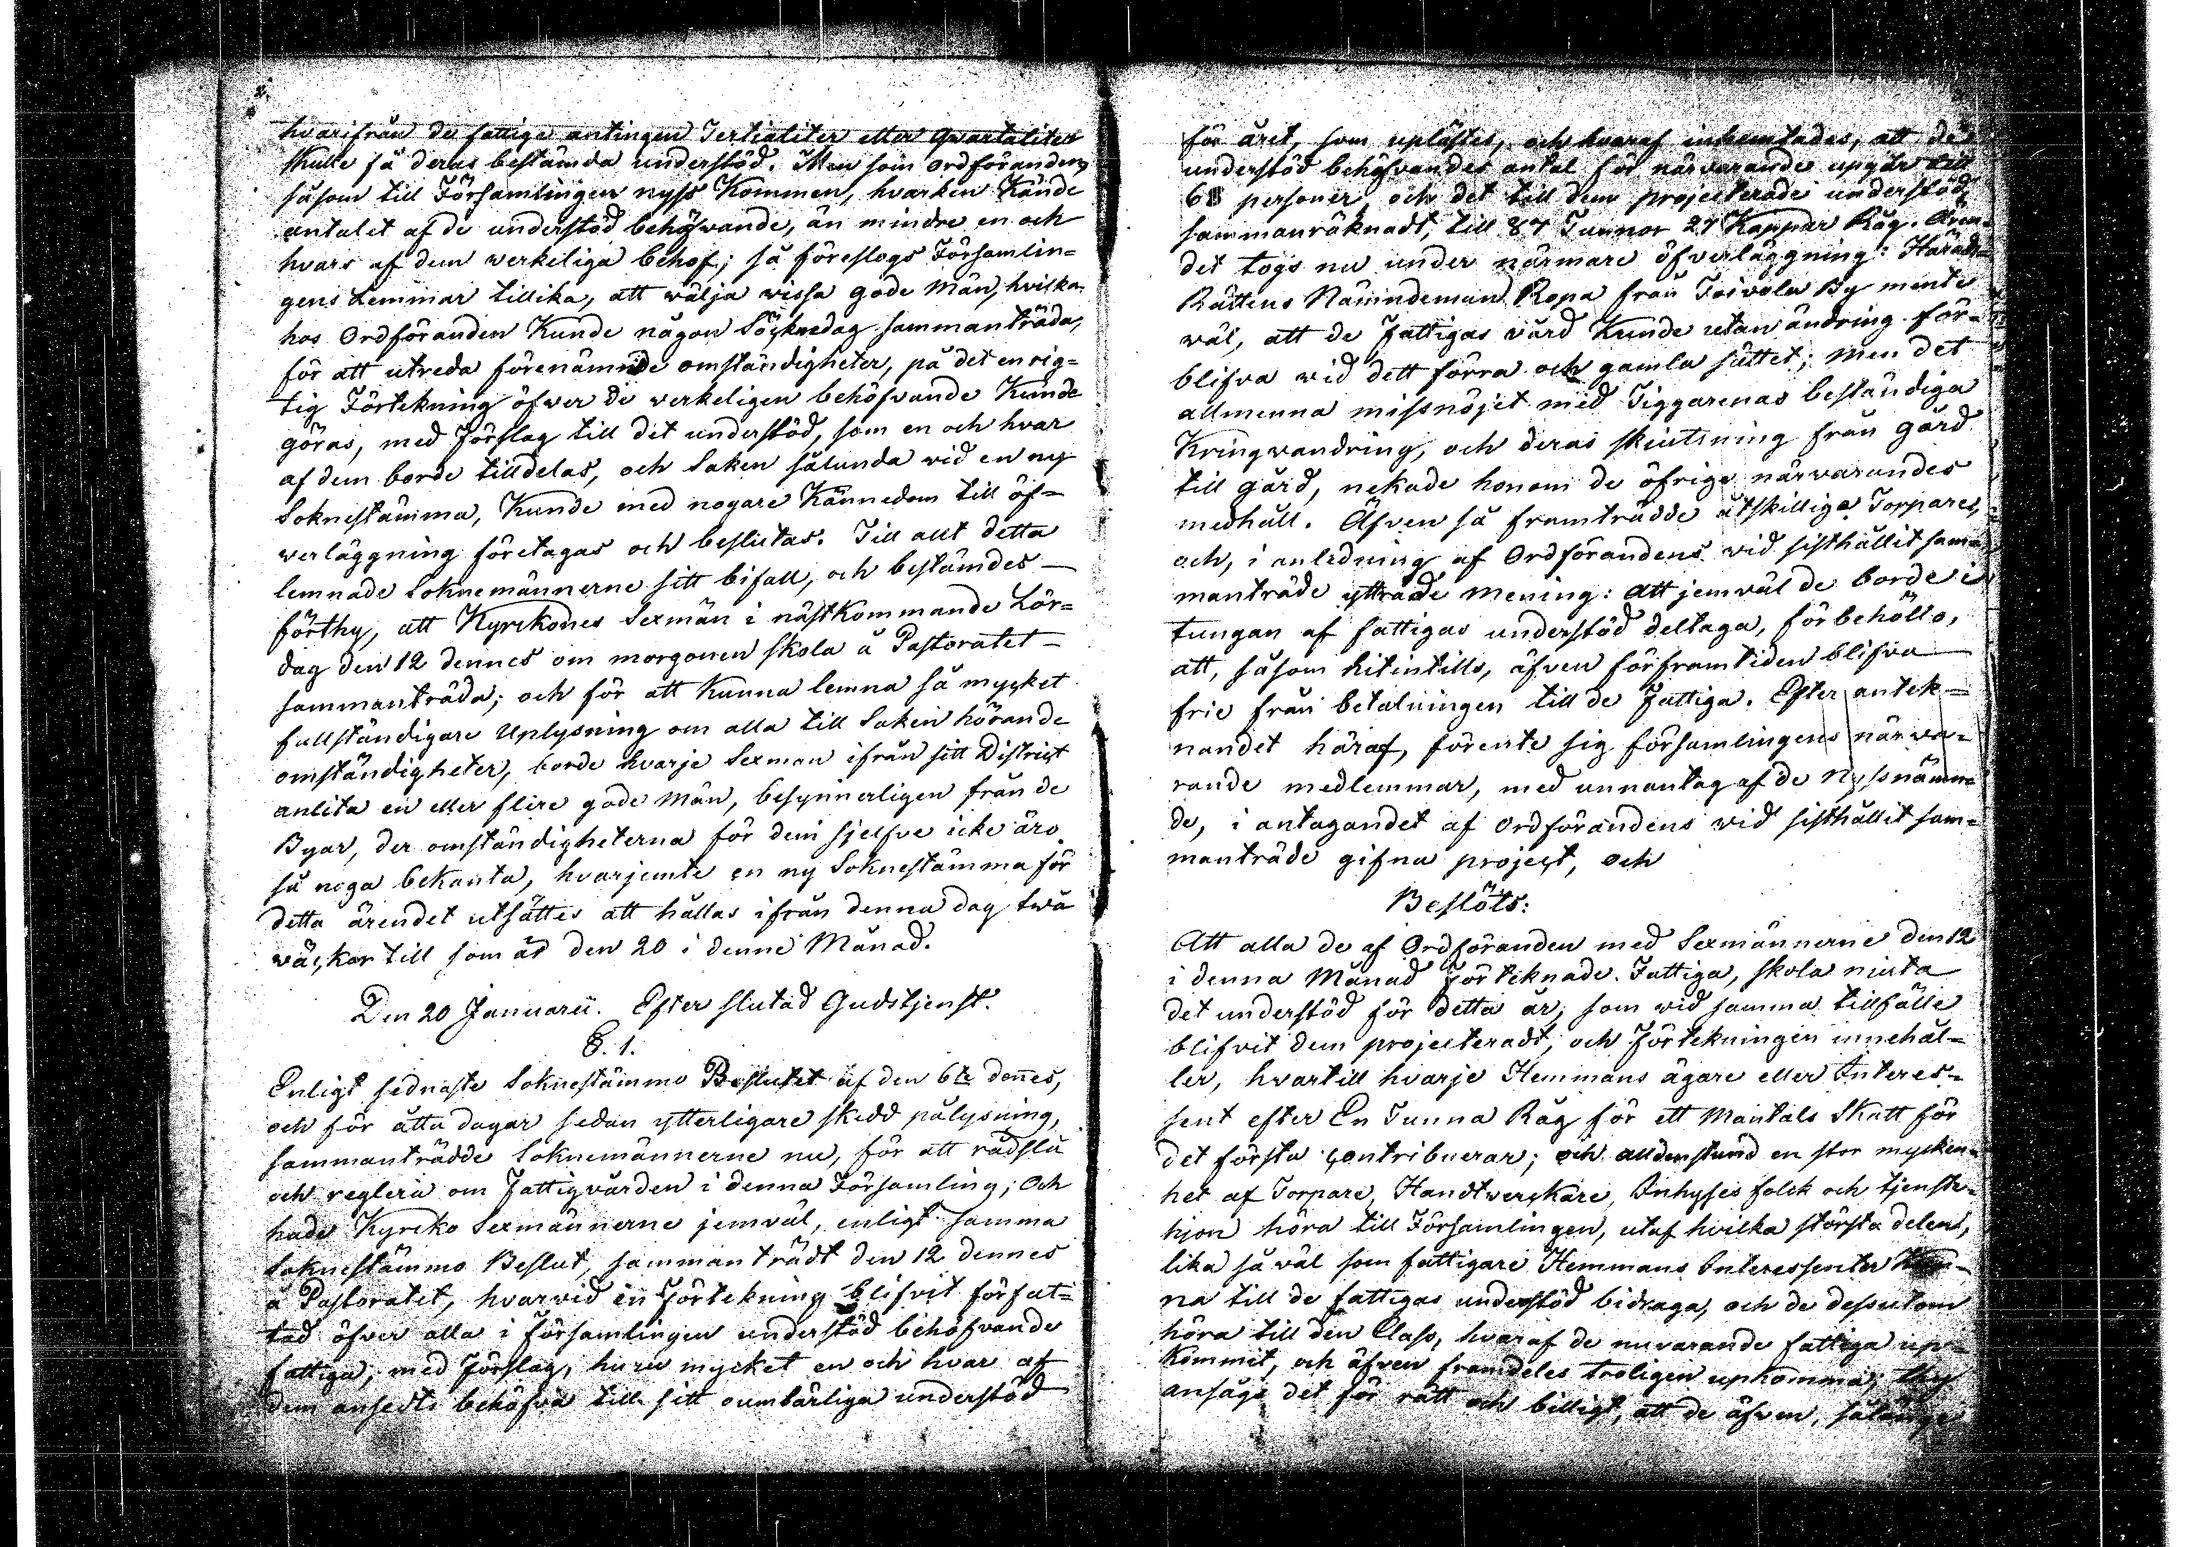 hvarifrån de fattige antingen Tertialiter eller Qvartaliter
skulle få deras bestämda understöd. Men som Ordföranden,
såsom till Församlingen nyss Kommen, hvarken Kände
antalet af de understöd behöfvande, än mindre en och
hvars af dem verkeliga behof; så föreslogs Församlin=
gens Lemmar tillika, att wälja wissa gode Män, hvilka
hos Ordföranden Kunde någon Söknedag sammanträda,
för att utreda förenämnde omständigheter, på det en rig=
tig Förtekning öfwer de verkeligen behöfvande Kunde
göras, med Förslag till det understöd, som en och hvar
af dem borde tilldelas, och Saken sålunda wid en ny
Soknestämma, Kunde med nogare Kännedom till öf=
verläggning företagas och beslutas. Till allt detta
lemnade Soknemännerne sitt bifall, och bestämdes —
förthy, att Kyrckones Sexmän i nästkommande Lör=
dag den 12 dennes om morgonen skola å Pastoratet —
sammanträda; och för att Kunna lemna så mycket
fullständigare Uplysning om alla till Saken hörande
omständigheter, borde hvarje Sexman ifrån sitt District
anlita en eller flere gode Män, besynnerligen från de
Byar, der omständigheterna för dem sjelfve icke äro
så noga bekanta, hvarjemte en ny Soknestämma för
detta ärendet utsättes att hållas ifrån denna dag twå
väckor till som är den 20 i denne Månad.
Den 20 Januarii. Efter slutad Gudstjenst.
§. 1.
Enligt sednaste Soknestämmo Beslutet af den 6te dennes,
och för åtta dagar sedan ytterligare skedd pålysning,
sammanträdde Soknemännerne nu, för att rådslå
och reglera om Fattigvården i denna Församling; Och
hade Kyrcko Sexmännerne jemväl, enligt samma
Soknestämmo Beslut, sammanträdt den 12 dennes
å Pastoratet, hvarwid en Förtekning blifvit författ=
tad öfver alla i församlingen understöd behöfvande
fattiga, med Förslag, huru mycket en och hvar af
dem ansedts behöfva till sitt oumbärliga understöd
för året, som uplästes, och hvaraf inhemtades, att de
understöd behöfvandes antal för närvarande upgår till
68 personer, och det till dem projecterade understöd,
sammanräknadt, till 87 Tunnor 27 Kappar Råg. Ären=
det togs nu under närmare öfverläggning: Härads=
Rättens Nämndeman Ropa från Toivola By mente
wäl, att de fattigas vård Kunde utan ändring för=
blifva wid dett förra och gamla sättet; men det
allmenna missnöjet med Tiggarenas beständiga
Kringvandring, och deras skjutsning från gård
till gård, nekade honom de öfrige närwarandes
medhåll. Äfven så framträdde åtskillige Torpare,
och, i anledning af Ordförandens wid sisthållit sam=
manträde yttrade Mening: att jemväl de borde i
tungan af fattigas understöd deltaga, förbehöllo,
att, såsom hitintills, äfven för framtiden blifva —
frie från betalningen till de Fattiga. Efter antek=
nandet häraf, förente sig församlingens närwa=
rande medlemmar, med unnantag af de Nyssnämn
de, i antagandet af Ordförandens wid sisthållit sam=
manträde gifna project, och
Beslöts:
Att alla de af Ordföranden med Sexmännerne den 12
i denna Månad Förteknade Fattiga, skola niuta
det understöd för detta år, som wid samma tillfälle
blifvit dem projecteradt, och Förtekningen innehål=
ler, hvartill hvarje Hemmans ägare eller Interes=
sent efter En Tunna Råg för ett Mantals Skatt för
det första contribuerar; och alldenstund en stor mycken=
het af Torpare, Handtverckare, Inhyses folck och tjenste=
hjon höra till Församlingen, utaf hvilka största delen,
lika så väl som fattigare Hemmans Interessenter Kun=
na till de fattigas understöd bidraga, och de dessutom
höra till den Class, hvaraf de nuvarande fattiga up=
kommit, och äfven framdeles troligen upkomma; thy
ansågs det för rätt och billigt, att de äfven, sålänge